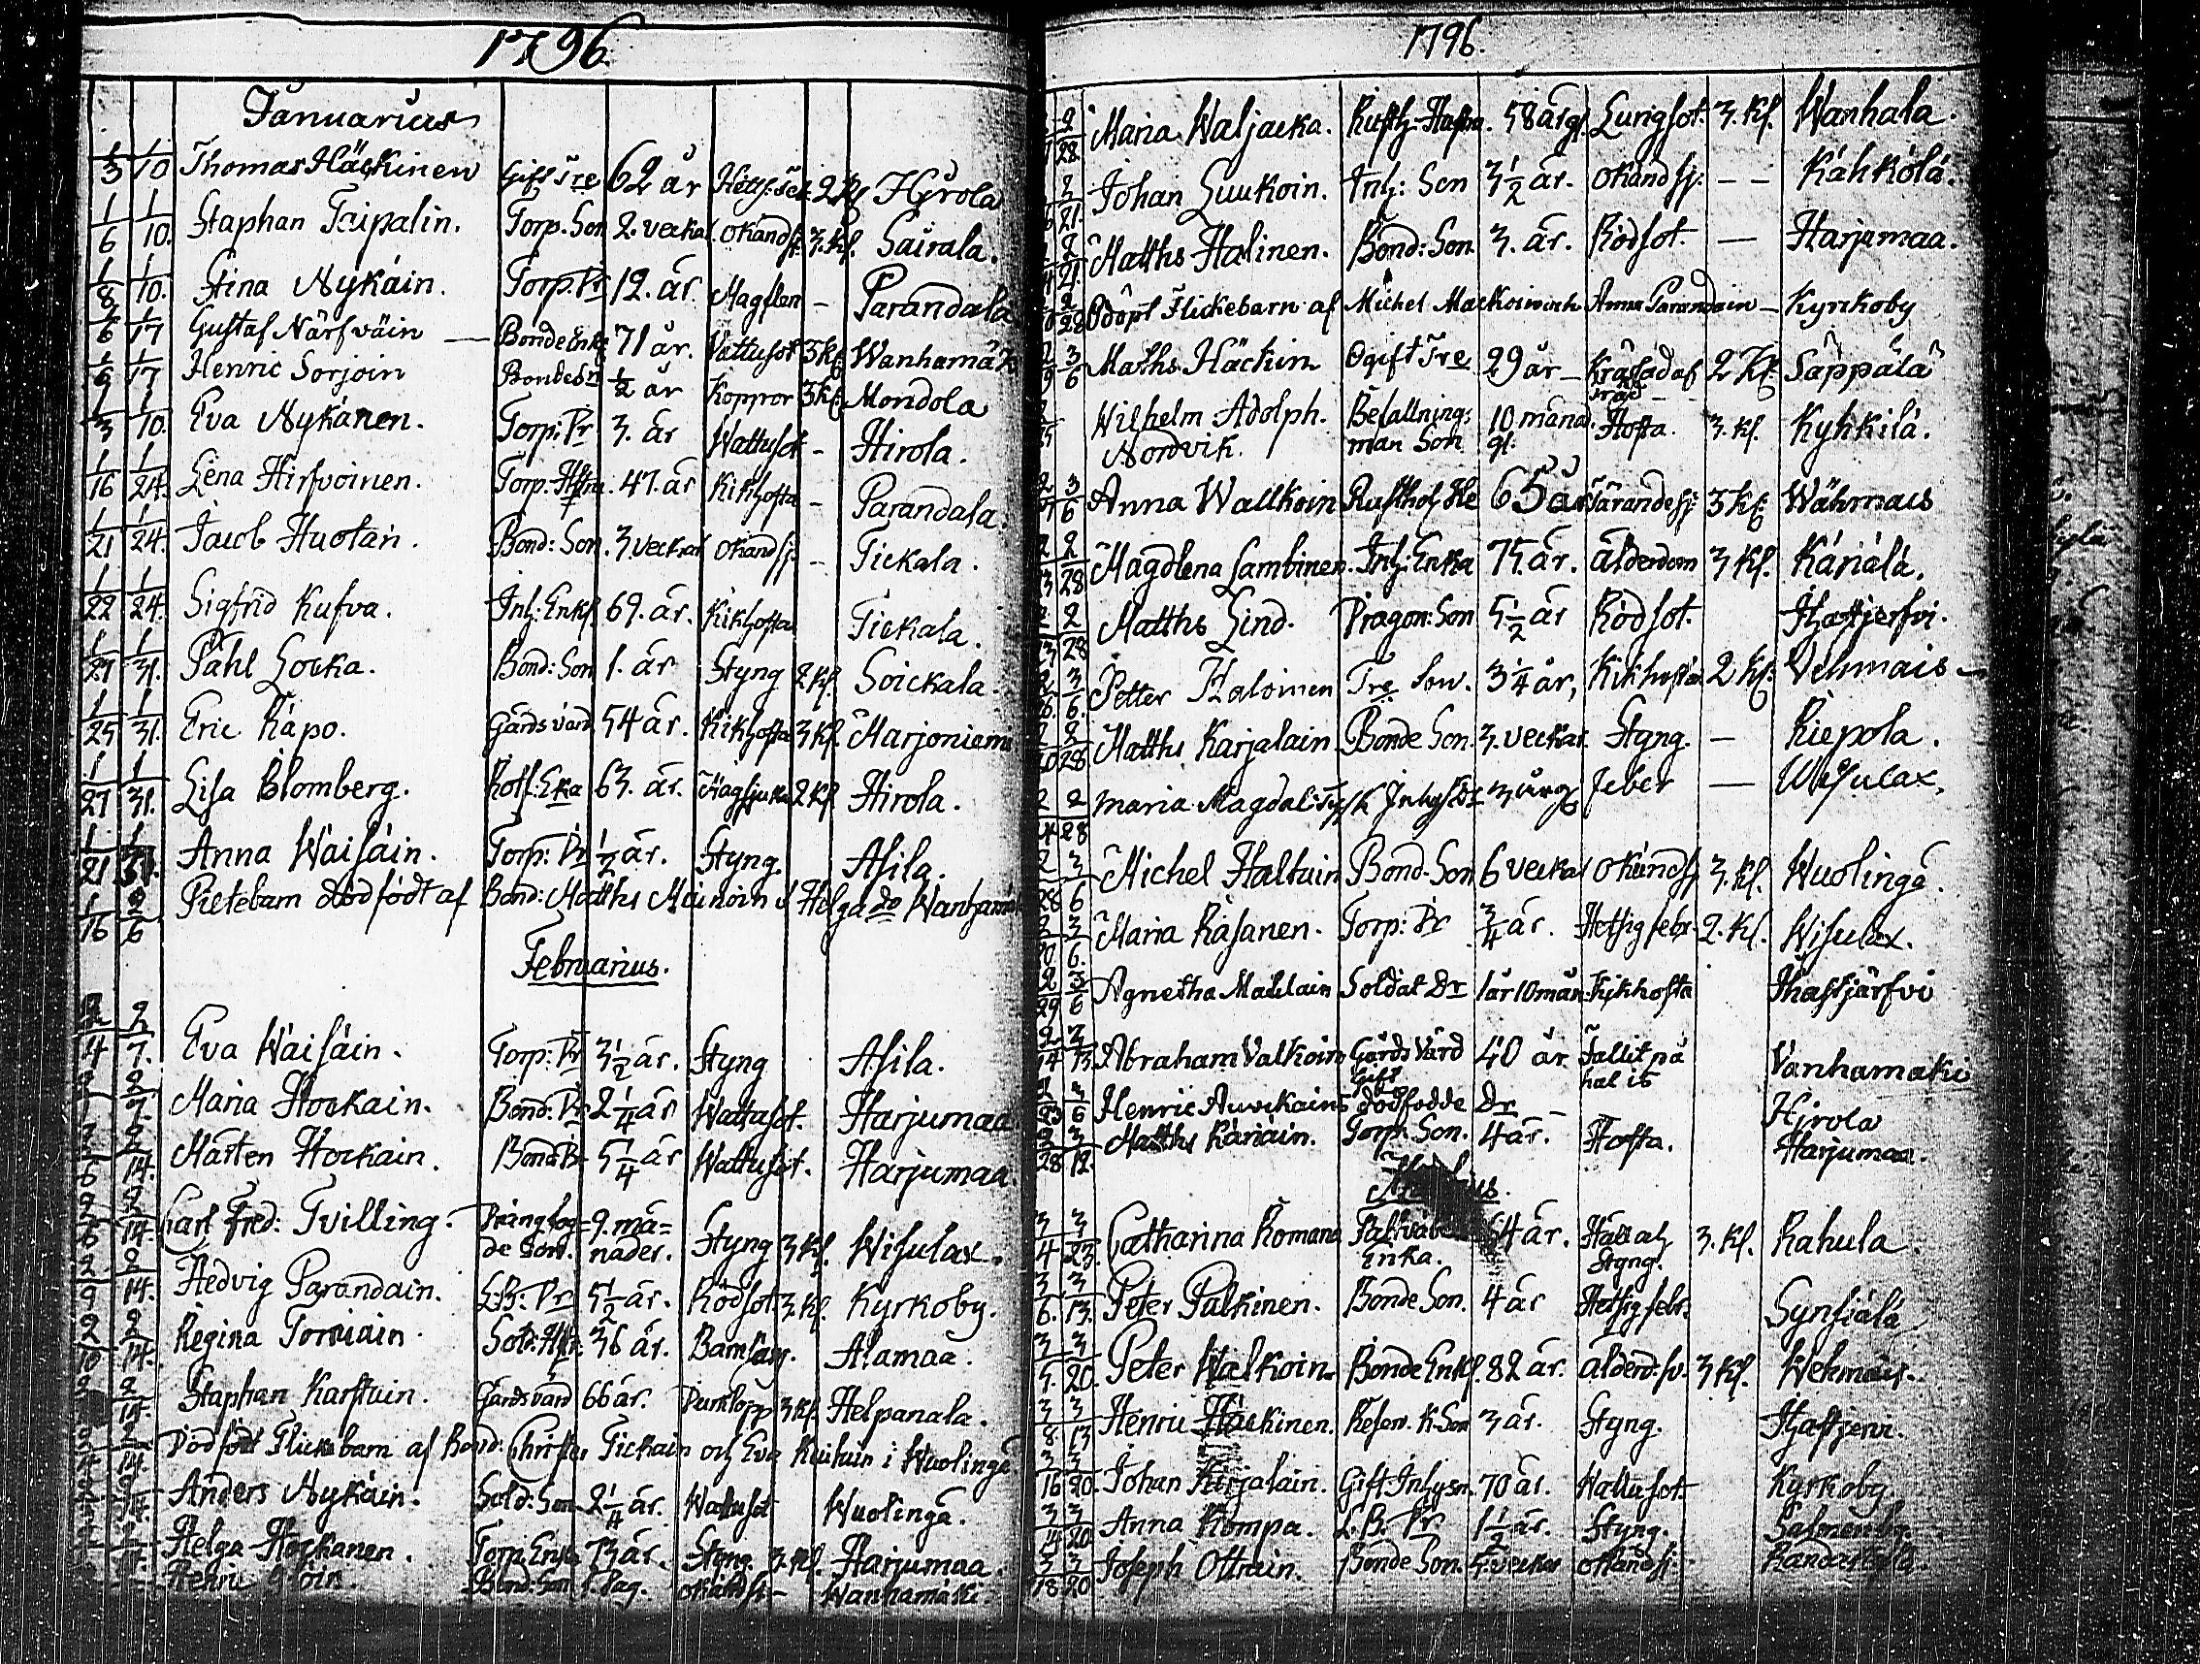 1796.
Januarius
1/3 1/10 Thomas Häckinen Gift Dre 62 år 2 Kl Hirola
1/6 1/10. Staphan Taipalin. Torp. Son 2. veckar okänd sj: 3. Kl. Sairala.
1/8 1/10. Stina Nykäin. Torp. Dr 12. år. Magplan – Parandala
1/6 1/17 Gustaf Närfväin — Bonde Enkl 71 år. Vattusot 3 Kl Wanhamäk
1/9 1/17 Henric Sorjoin Bondesn 1/2 år Koppor 3 Kl. Mondola
1/3 1/10. Eva Nykänen. Torp: Dr 3. år Wattusot – Hirola.
1/16 1/24. Lena Hirfvoinen. Torp. Hstra. 47. år Kikhosta – Parandala.
1/21 1/24. Jacob Huotain. Bond: Son. 3 veckar okänd sj: – Tickala.
1/22 1/24. Sigfrid Kufva. Inh: Enkl. 69. år. Kikhosta Tickala.
1/27 1/31. Påhl Locka. Bond: Son 1. år Styng 2 Kl. Soickala.
1/25 1/31. Eric Käpo. Gårdsvärd 54 år. Kikhosta 3 Kl. Marjoniemi
1/27 1/31. Lisa Blomberg. Rotf: Eka 63. år. 2 Kl Hirola.
1/21 1/31. Anna Wäisäin. Torp: Dr 1/2 år. Styng. Asila.
1/16 2/6 Piltebarn dödfödt af Bond: Matths Mäinöin & Helga do Wanham
Februarius.
2/4 2/7. Eva Wäisäin. Torp: Dr 3 1/2 år. Styng Asila.
2/1 2/7. Maria Hockain. Bond: Dr 2 1/4 år Wattusot. Harjumaa
2/6 2/14. Mårten Hockain. Bond 5 1/4 år Wattusot. Harjumaa.
2/6 2/14. Carl Fred: Tvilling. Drängfog=
de Son. 9. må=
nader. Styng 3 Kl. Wisulax.
2/9 2/14. Hedvig Parandain. L.B: Dr 5 1/2 år. Rödsot 3 Kl. Kyrkoby.
2/10 2/14. Regina Torniain. 36 år. Barnsäng. Alamaa.
2/14. Staphan Karstuin. Gårdsvärd 66 år. 3 Kl. Helpanala.
2/14. Dödfödt Flickebarn af Bond: Christer Tickain och Eva Kuituin i Wuolinga
Anders Nykäin. Sold: Son 2 1/4 år. Wattusot Wuolinga.
Helga Hockanen. Torp. Enka 73 år. Styng. 3. Kl. Harjumaa.
Henric Bond: Son 1. Dag. okänd sj – Wanhamäki.
1796.
2/28 Maria Waljacka. Rusth: Hustra. 58 årg. Lungsot. 3. Kl. Wanhala.
2/21. Johan Luukoin. Inh: Son 3 1/2 år. okänd sj: – – Kähkölä.
2/21. Matths Halinen. Bond: Son 3. år. Rödsot. — Harjumaa.
2/28 Odöpt Flickebarn af Michel Anna Parandain – Kyrkoby
2/9 3/6 Maths Häckin Ogift Dre 29 år – Kräsad af
träd 2 Kl Säppälä
Wilhelm Adolph.
Nordvik. Befallning:
man Son 10 måna
gl. Hosta. 3. Kl. Kyhkilä.
3/6 Anna Wallkoin Rusthol 65 år Tärande sj: 3 Kl: Wähmais
2/28 Magdlena Lambinen. Inh: Enka 75. år. ålderdom 3 Kl. Käriälä.
2/28 Matths Lind. Dragon: Son 5 1/2 år Rödsot. Hatsjerfvi.
3/6. Petter Haloinen Dre Son. 3 1/4 år, Kikhosta 2 Kl. Vehmais –
2/28 Matths Karjalain Bonde Son. 3. veckar Styng. — Riepola.
2/4 2/28 Maria Magdal: 3 årg feber — Wisulax.
2/28 3/6 Michel Haltuin Bond. Son 6 veckar okänd sj 3. Kl. Wuolinga.
3/6. Maria Räsänen. Torp: Dr 3/4 år. Hetsig feber. 2. Kl. Wisulax.
2/29 3/6 Agnetha Mattlain Soldat Dr 1 år 10 mån. Kikhosta Hastjärfvi
2/14 3/13 Abraham Valkoin Gårds Värd
Gift 40 år Fallit på
hal is Vanhamäki
2/23 3/6 Henric Auvikains dödfödde Dr – Hirola
2/28 3/12. Matths Käriäin. Torp. Son. 4 år. Hosta. Harjumaa.
3/4 3/23. Catharina Romana
Enka. 64 år. Håll och
Styng. 3. Kl. Rahula.
3/6. 3/13. Peter Pulkinen. Bonde Son. 4 år Hetsig feber. Synsiälä
3/5. 3/20. Peter Walkoin. Bonde Enkl. 82 år. ålderd: sv. 3 Kl. Wehmais.
3/8 3/13 Henric Häckinen. Reserv. K. Son 3 år. Styng. Hastjerv.
3/16 3/20. Johan Kirjalain. Gift Inhysn. 70 år. Wattusot. Kyrkoby.
3/14 3/20 Anna Kompa. L. B: Dr. 1 1/2 år. Styng.
3/18 3/20 Joseph Ottuin. Bonde Son. 5. veckor okänd sj: